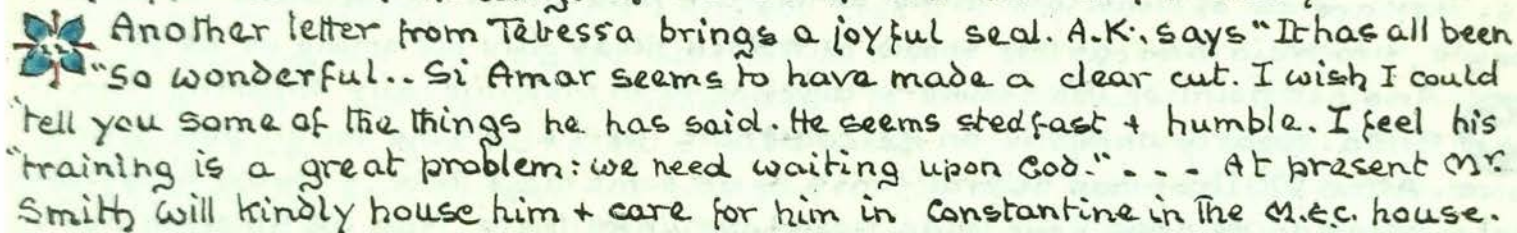 Another letter from Tebessa brings a joyful seal. A.K., says "It has all been
"so wonderful.. Si Amar seems to have made a clear cut. I wish I could
"tell you some of the things he has said. He seems stedfast + humble. I feel his
"training is a great problem: we need waiting upon God." - - - At present Mr.
Smith will kindly house him + care for him in Constantine in the M.E.C. house.